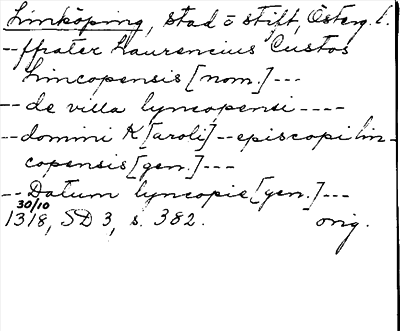 Linköping, stad o stift, Österg. l.
-- ffrater Laurencius Custos
Lincopensis [nom.] ---
-- de villa lyncopensi ----
-- domini K[aroli] -- episcopi lin-
copensis [gen.] ---
-- Datum lyncopie [gen.] ---
30/10
1318, SD 3, s. 382. orig.